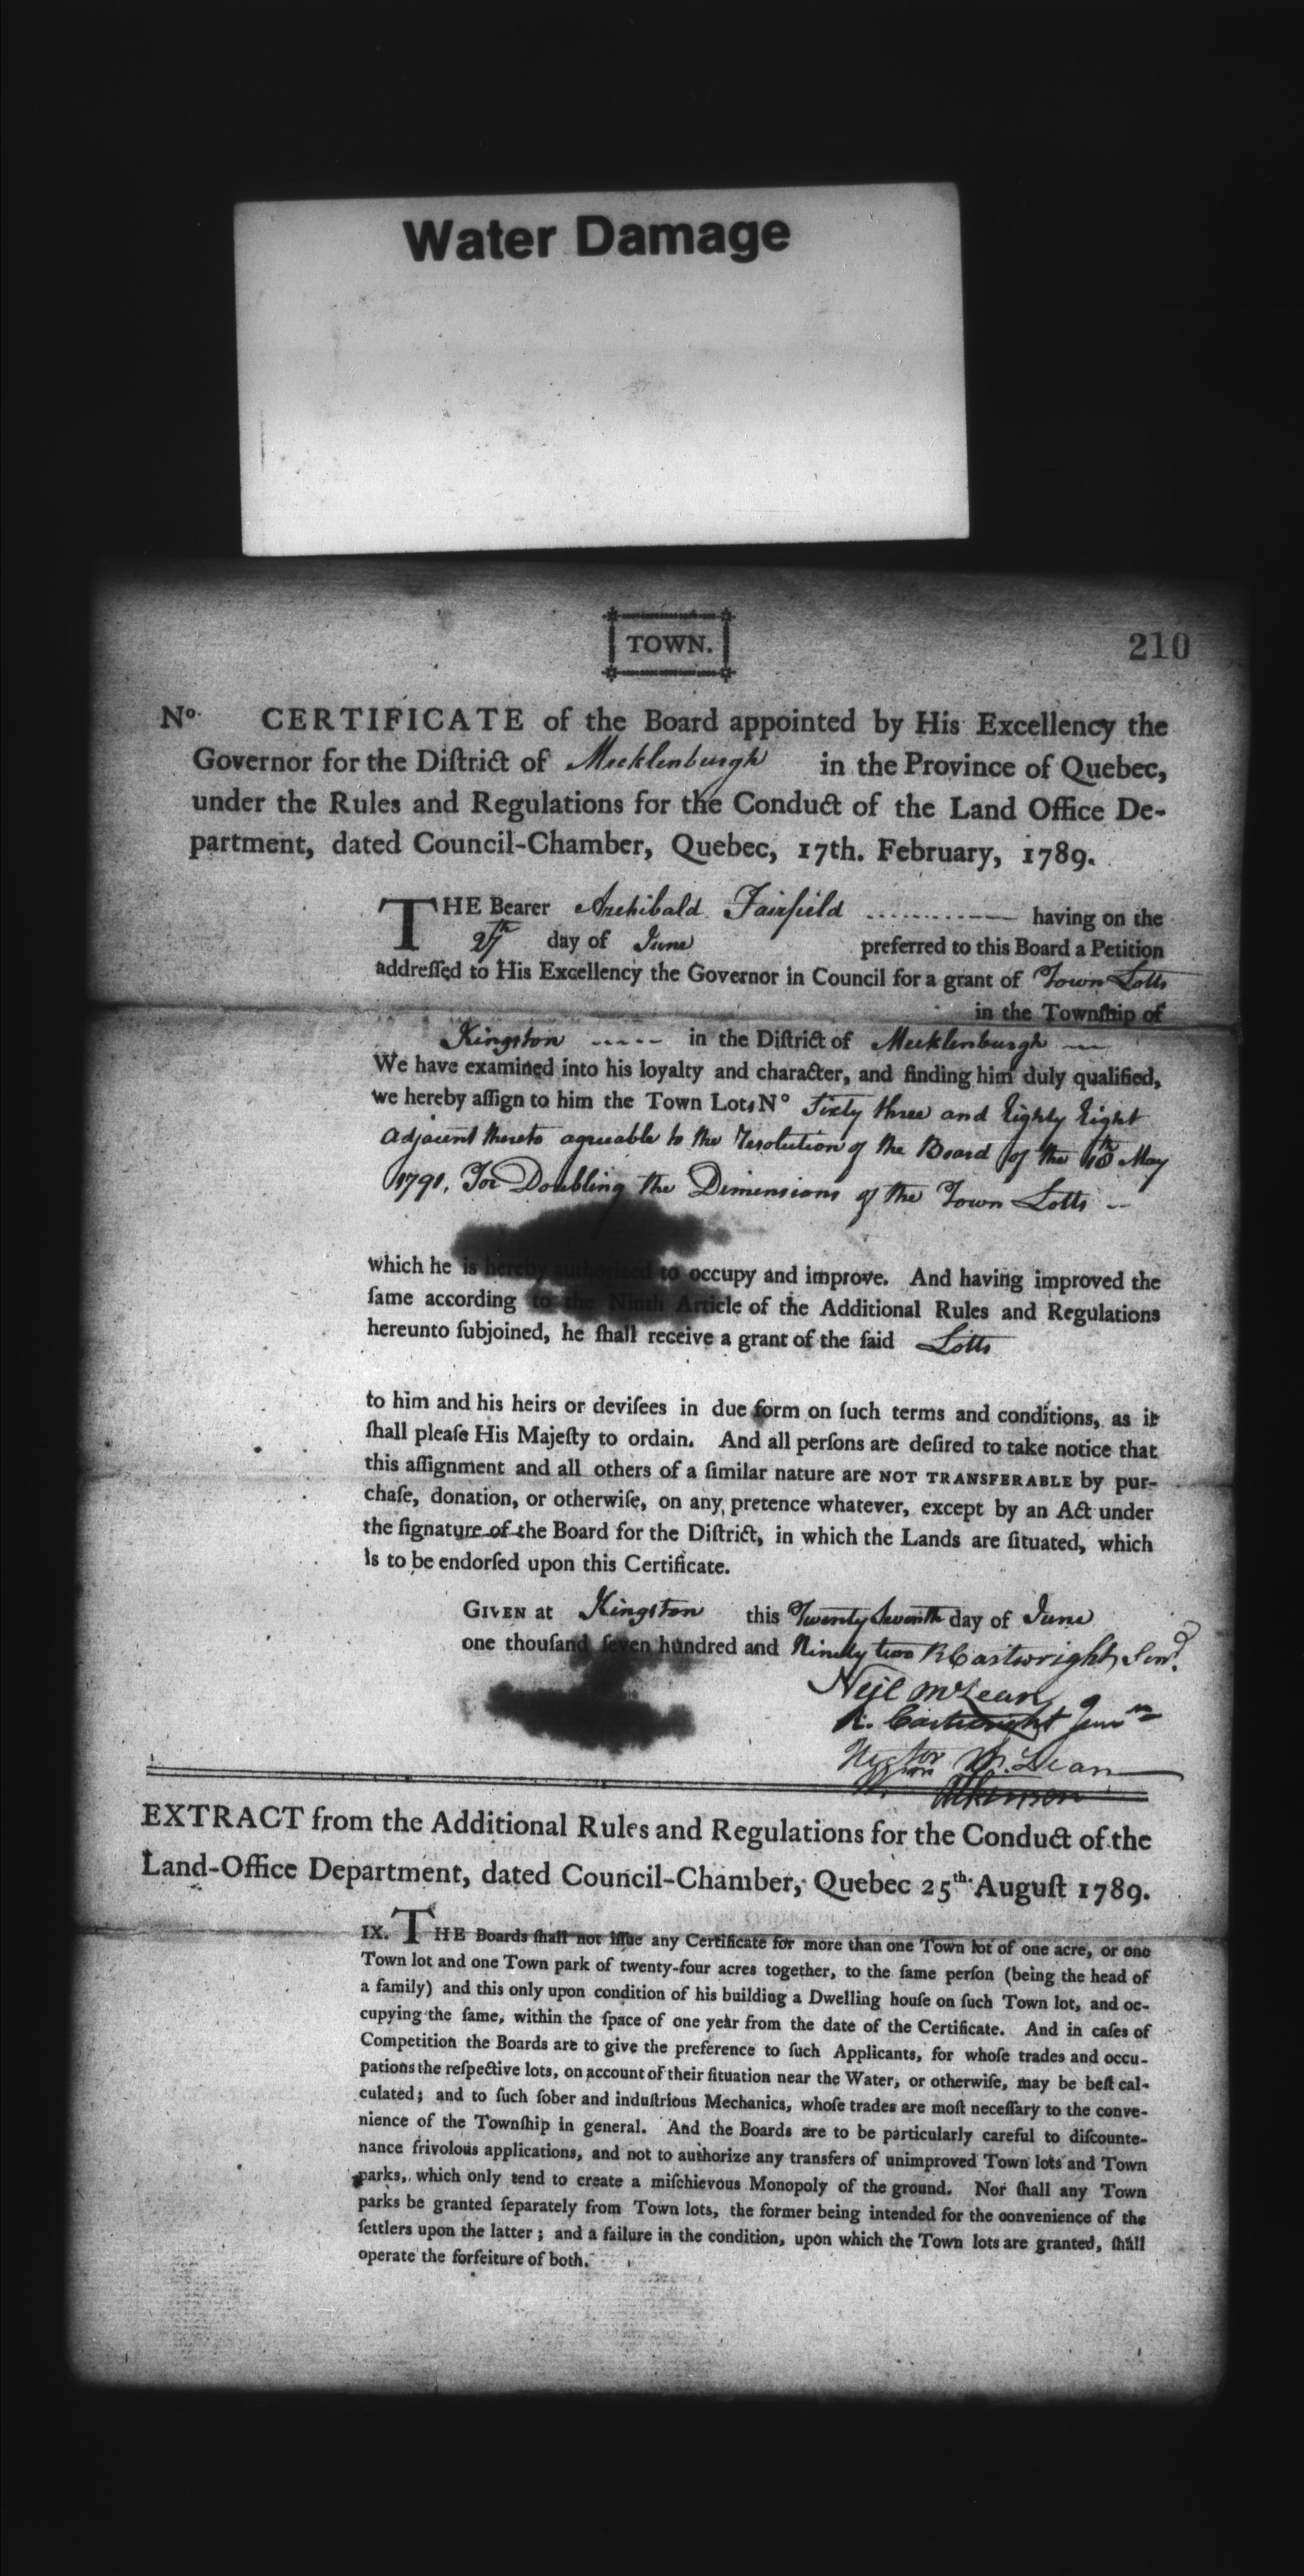 Water Damage
TOWN.
210
No. CERTIFICATE of the Board appointed by His Excellency the
Governor for the Diſtrict of Mecklenburgh in the Province of Quebec,
under the Rules and Regulations for the Conduct of the Land Office De-
partment, dated Council-Chamber, Quebec, 17th. February, 1789.
THE Bearer Archibald Fairfield having on the
27th day of June preferred to this Board a Petition
addreſſed to His Excellency the Governor in Council for a grant of Town Lotts
in the Townſhip of
Kingston ----- in the Diſtrict of Mecklenburgh —
We have examined into his loyalty and character, and finding him duly qualified,
we hereby aſſign to him the Town Lots No Sixty three and Eighty Eight
adjacent thereto agreeable to the Resolution of the Board of the 18th May
1791. For Doubling the Dimensions of the Town Lotts --
which he is hereby authorized to occupy and improve. And having improved the
ſame according to the Ninth Article of the Additional Rules and Regulations
hereunto ſubjoined, he ſhall receive a grant of the ſaid Lotts
to him and his heirs or deviſees in due form on ſuch terms and conditions, as it
ſhall pleaſe His Majeſty to ordain. And all perſons are deſired to take notice that
this aſſignment and all others of a ſimilar nature are NOT TRANSFERABLE by pur-
chaſe, donation, or otherwiſe, on any pretence whatever, except by an Act under
the ſignature of the Board for the Diſtrict, in which the Lands are ſituated, which
is to be endorſed upon this Certificate.
GIVEN at Kingston this Twenty Seventh day of June
one thouſand ſeven hundred and Ninety two R Cartwright, Senr.
Neil McLean
R. Cartwright Junr
Hector McLean
Wm Atkinson
EXTRACT from the Additional Rules and Regulations for the Conduct of the
Land-Office Department, dated Council-Chamber, Quebec 25th. Auguſt 1789.
IX. THE Boards ſhall not iſſue any Certificate for more than one Town lot of one acre, or one
Town lot and one Town park of twenty-four acres together, to the ſame perſon (being the head of
a family) and this only upon condition of his building a Dwelling houſe on ſuch Town lot, and oc-
cupying the ſame, within the ſpace of one year from the date of the Certificate. And in caſes of
Competition the Boards are to give the preference to ſuch Applicants, for whoſe trades and occu-
pations the reſpective lots, on account of their ſituation near the Water, or otherwiſe, may be beſt cal-
culated; and to ſuch ſober and induſtrious Mechanics, whoſe trades are moſt neceſſary to the conve-
nience of the Townſhip in general. And the Boards are to be particularly careful to diſcounte-
nance frivolous applications, and not to authorize any transfers of unimproved Town lots and Town
parks, which only tend to create a miſchievous Monopoly of the ground. Nor ſhall any Town
parks be granted ſeparately from Town lots, the former being intended for the convenience of the
ſettlers upon the latter; and a failure in the condition, upon which the Town lots are granted, ſhall
operate the forfeiture of both.